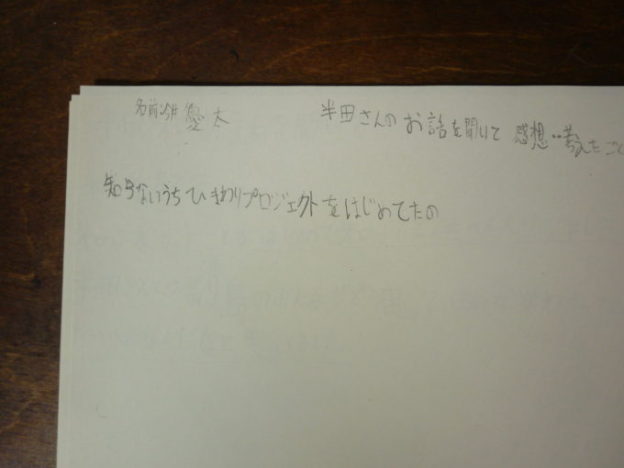 名前 愛太 半田さんのお話を聞いて 感想・考えたこと
知らないうちひまわりプロジェクトをはじめてたの